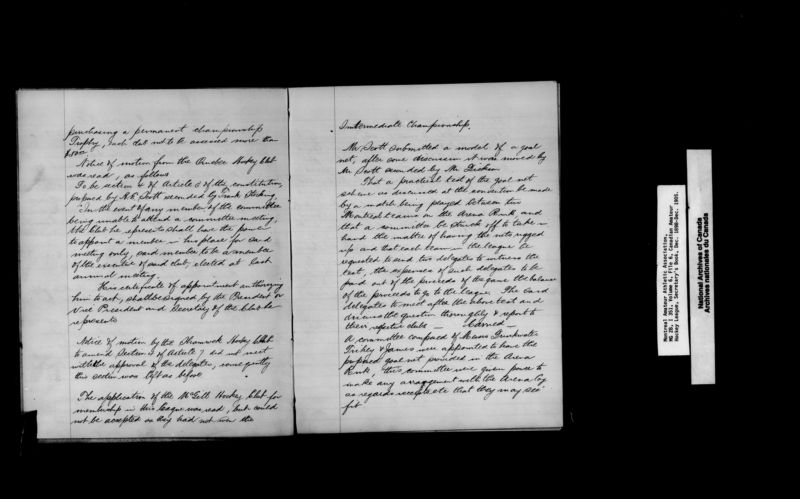 purchasing a permanent championship
Trophy, each club not to be assessed more than
Notice of motion from the Quebec Hockey Club
was read, as follows
To be section of Article of the constitution,
proposed by A.E. Scott seconded by Frank Stocking
"In the event of any member of the committee
being unable to attend a committee meeting,
the club he represents shall have the power
to appoint a member in his place for said
meeting only, said member to be a member
of the executive of said club, elected at last
annual meeting.
His certificate of appointment authorizing
him to act, shall be signed by the President or
Vice President and Secretary of the club he
represents
Notice of motion by the Shamrock Hockey Club
to amend Section of Article 7 did not meet
with the approval of the delegates, consequently
this section was left as before
The application of the McGill Hockey Club for
membership in this league was read, but could
not be accepted as they had not won the
Intermediate Championship.
Mr. Scott submitted a model of a goal
net, after some discussion it was moved by
Mr Scott seconded by Mr
That a practical test of the goal net
scheme as discussed at the convention be made
by a match being played between two
Montreal teams in the Arena Rink, and
that a committee be struck off to take in
hand the matter of having the nets rigged
up and that each team in the league be
requested to send two delegates to witness the
test, the expenses of such delegates to be
paid out of the proceeds of the game the balance
of the proceeds to go to the league. The said
delegates to meet after the above test and
discuss the question thoroughly & report to
their respective clubs — Carried —
A committee composed of Messrs Drinkwater
Trihey & James were appointed to have the
proposed goal net provided in the Arena
Rink, this committee were given power to
make any arrangement with the Arena Coy
as regards receipts etc that they may see
fit
Montreal Amateur Athletic Association.
MG 28, I 351, Volume 6, File 6, Canadian Amateur
Hockey League, Secretary's Book, Dec. 1898-Dec. 1905.
National Archives of Canada
Archives nationales du Canada